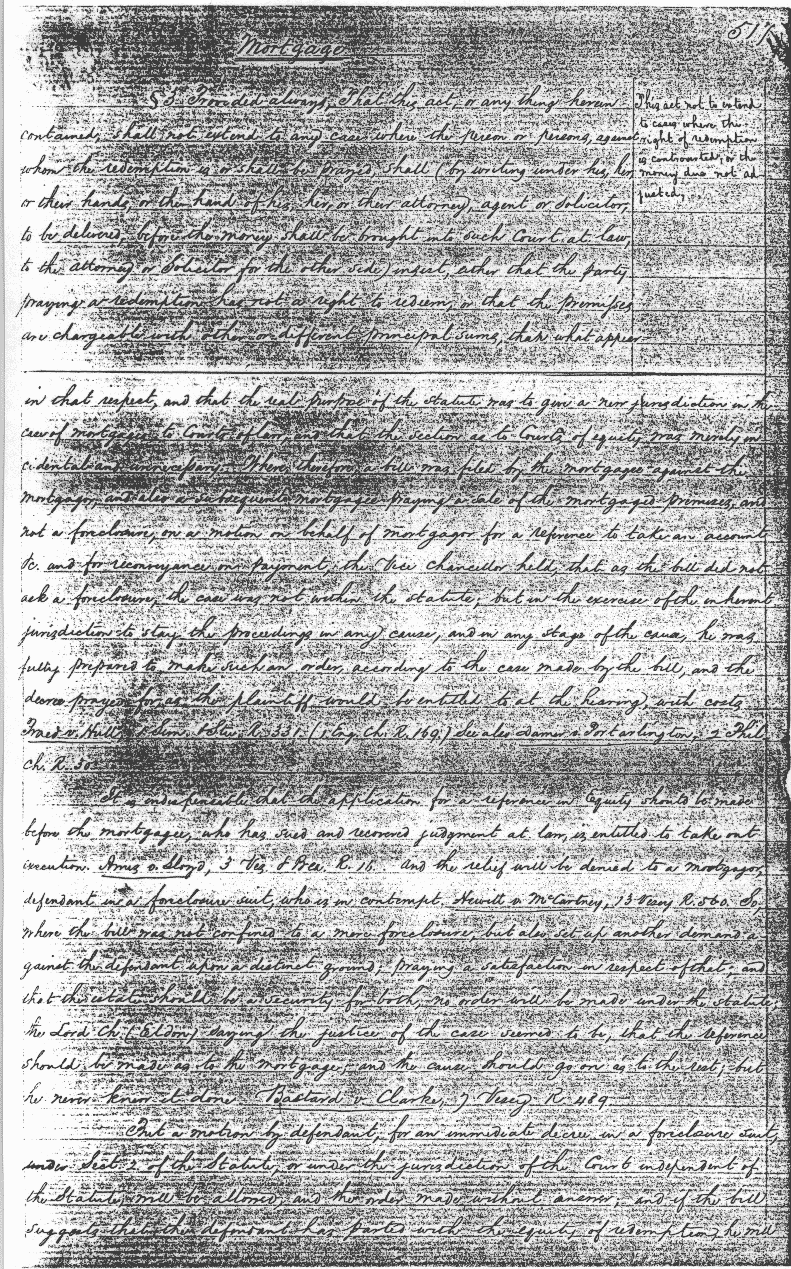 517
Mortgage
§ 3. Provided always, That this act, or any thing herein
contained, shall not extend to any case where the person or persons, against
whom the redemption is or shall be prayed, shall (by writing under his, her
or their hands, or the hand of his, her, or their attorney, agent or solicitor,
to be delivered, before the money shall be brought into such Court at law,
to the attorney or Solicitor for the other side) insist, either that the party
praying a redemption has not a right to redeem, or that the premises
are chargeable with other or different principal sums, than what appear
This act not to extend
to cases where the
right of redemption
is controverted, or the
money due not ad-
justed.
in that respect, and that the real purpose of the statute was to give a new jurisdiction in the
case of mortgages to Courts of law, and that the section as to Courts of equity was merely in
cidental and unnecessary. Where therefore a bill was filed by the mortgagee against the
mortgagor, and also a subsequent mortgagee praying a sale of the mortgaged premises, and
not a foreclosure, on a motion on behalf of mortgagor for a reference to take an account
&c. and for reconveyance on payment, the Vice chancellor held, that as the bill did not
ask a foreclosure, the case was not within the statute; but in the exercise of the inherent
jurisdiction to stay the proceedings in any cause, and in any stage of the cause, he was
fully prepared to make such an order, according to the case made by the bill, and the
decree prayed for, as the plaintiff would be entitled to at the hearing, with costs.
v. Hull Sim. & Stu. R. 331. (1 Eng. Ch. R. 169.) See also Damer v. Portarlington, 2 Phil
ch. R. 30
It is indispensable that the application for a reference in Equity should be made
before the mortgagee, who has sued and recovered judgment at law, is entitled to take out
execution. Amis v. Lloyd, 3 Ves. & Bea. R. 16. and the relief will be denied to a mortgagor,
defendant in a foreclosure suit, who is in contempt. Hewitt v. McCartney, 13 Vesey R. 560. So,
where the bill was not confined to a mere foreclosure, but also set up another demand a
gainst the defendant upon a distinct ground, praying a satisfaction in respect of that, and
that the estate should be a security for both, no order will be made under the statute,
the Lord Ch. (Eldon) saying the justice of the case seemed to be, that the reference
should be made as to the mortgage, and the cause should go on as to the rest, but
he never knew it done. Bastard v. Clarke, 7 Vesey R. 489
But a motion by defendant, for an immediate decree in a foreclosure suit,
under Sect. 2 of the Statute, or under the jurisdiction of the Court independent of
the Statute, will be allowed, and the order made without answer, and if the bill
suggests that the defendant has parted with the equity of redemption, he will